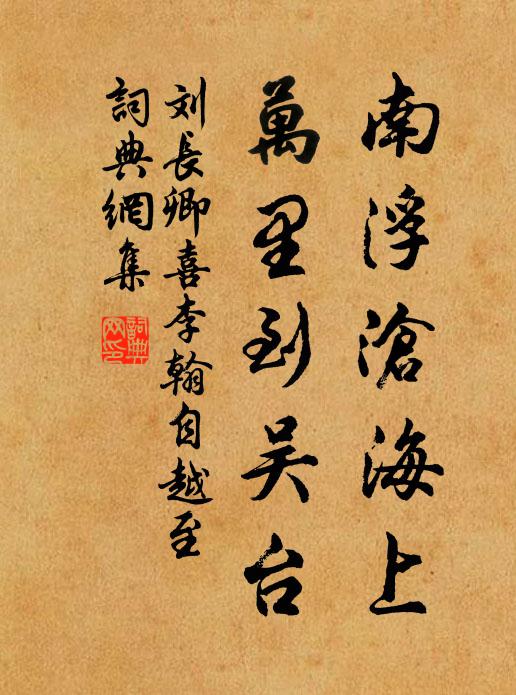 南浮滄海上
萬里到吴台
刘長卿喜李翰自越至
詞典網集
詞典
网印